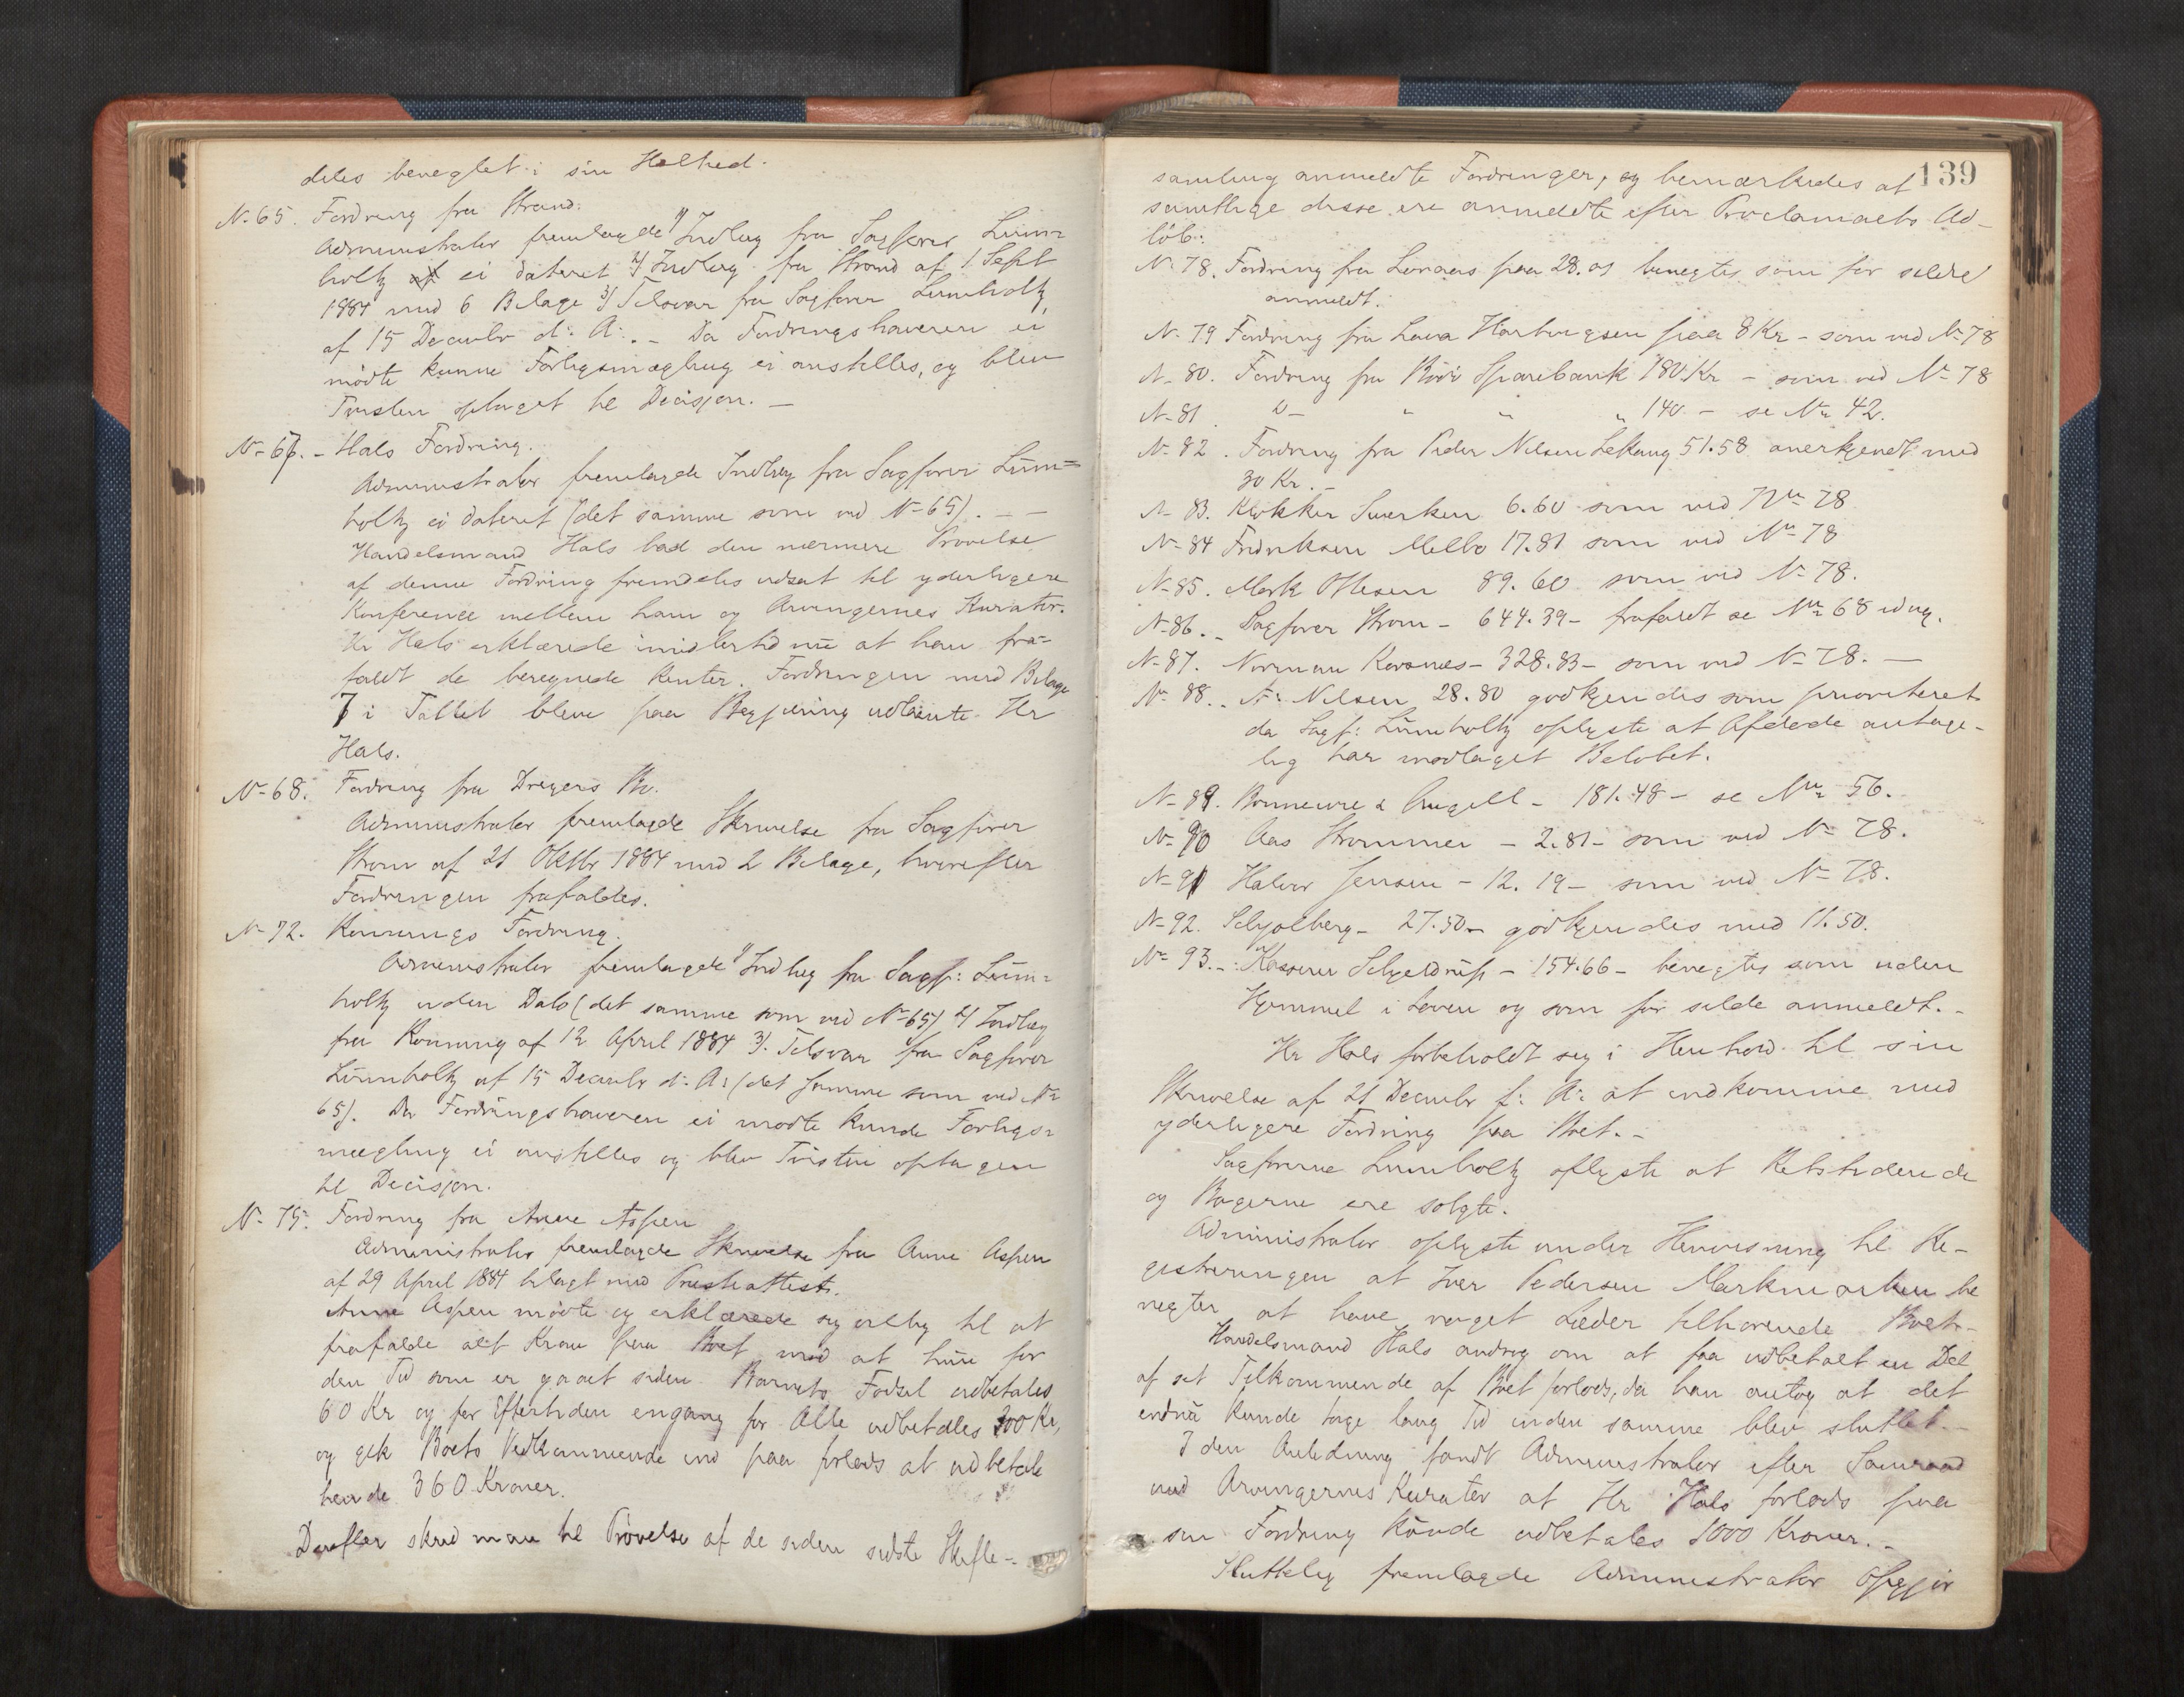 deles benegtet i sin Helhed.
No 65. Fordring fra Strand:
Administrator fremlagde 1/ Indlæg fra Sagfører Lum=
holtz ei dateret 2/ Indlæg fra Strand af 1 Sept
1884 med 6 Bilage 3/ Tilsvar fra Sagfører Lumholtz
af 15 Decembr d: A: . - Da Fordringshaveren ei
mødte kunne Forligsmægling ei anstilles, og blev
Tvisten optaget til Decisjon. -
No 67. - Hals Fordring.
Administrator fremlagde Indlæg fra Sagfører Lum=
holtz ei dateret (det samme som ved No 65). - -
Handelsmand Hals bad den nærmere Prøvelse
af denne Fordring fremdeles udsat til yderligere
Konference mellem ham og Arvingernes Kurator.
Hr Hals erklærede imidlertid nu at han fra=
faldt de beregnede Renter. Fordringen med Bilage
7 i Tallet bleve paa Begjæring udlaante Hr
Hals.
No 68. Fordring fra Dreyers Bo.
Administrator fremlagde Skrivelse fra Sagfører
Strøm af 21 Oktbr 1884 med 2 Bilage, hvorefter
Fordringen frafaldes.
No 72. Konnings Fordring.
Administrator fremlagde 1/ Indlæg fra Sagf: Lum=
holtz uden Dato (det samme som ved No 65) 2/ Indlæg
fra Konning af 12 April 1884 3/. Tilsvar fra Sagfører
Lumholtz af 15 Decembr d: A: (det samme som ved No
65). Da Fordringshaveren ei mødte kunde Forligs=
mægling ei anstilles og blev Tvisten optagen
til Decisjon.
No 75. Fordring fra Anne Aspen
Administrator fremlagde Skrivelse fra Anne Aspen
af 29 April 1884 bilagt med Presteattest.
Anne Aspen mødte og erklærede sig villig til at
frafalde alt Krav paa Boet mod at hun for
den Tid som er gaaet siden Barnets Fødsel udbetales
60 Kr og for Eftertiden engang for Alle udbetales 300 Kr,
og gik Boets Vedkommende ind paa forlods at udbetale
hende 360 Kroner.
Derefter skred man til Prøvelse af de siden sidste Skifte-
139
samling anmeldte Fordringer, og bemærkedes at
samtlige disse ere anmeldte efter Proclamaets Ud-
løb:
No 78. Fordring fra Lornæs paa 28.05 benegtes som for silde
anmeldt.
No 79 Fordring fra Lava Hartvigsen paa 8 Kr - som ved No 78
No 80. Fordring fra Bodø Sparebank 180 Kr - som ved No 78
No 81 Do - " " " 140 - se No 42.
No 82. Fordring fra Peder Nilsen Lekang 51.58 anerkjendt med
30 Kr. -
No 83. Klokker Sværken 6.60 som ved No 78
No 84 Fredriksen Melbo 17.81 som ved No 78
No 85. Mork Ottesen 89.60 som ved No 78.
No 86. - Sagfører Strøm - 644.39 - frafaldt se No 68 idag.
No 87. Norman Korsnes - 328.83 - som ved No 78. -
No 88. . A: Nilsen 28.80 godkjendes som prioriteret
da Sagf: Lumholtz oplyste at Afdøde antage-
lig har modtaget Beløbet.
No 89. Bonnevie & Angell - 181.48 - se No 56.
No 90 Aas Strømmen - 2.81 - som ved No 78.
No 91 Halvor Jensen - 12.19 - som ved No 78.
No 92. Schjølberg - 27.50 - godkjendes med 11.50.
No 93. - Kasserer Schjeldrup - 154.66 - benegtes som uden
Hjemmel i Loven og som for silde anmeldt. -
Hr Hals forbeholdt sig i Henhold til sin
Skrivelse af 21 Decembr f: A: at indkomme med
yderligere Fordring paa Boet. -
Sagfører Lumholtz oplyste at Retstidende
og Bøgerne ere solgte.
Administrator oplyste under Henvisning til Re-
gistreringen at Iver Pedersen Markmarken be
negter at have noget Læder tilhørende Boet. -
Handelsmand Hals androg om at faa udbetalt en Del
af sit Tilkommende af Boet forlods, da han antog at det
endnu kunde tage lang Tid inden samme blev sluttet. -
I den Anledning fandt Administrator efter Samraad
med Arvingernes Kurator at Hr Hals forlods paa
sin Fordring kunde udbetales 1000 Kroner. -
Sluttelig fremlagde Administrator Opgjør